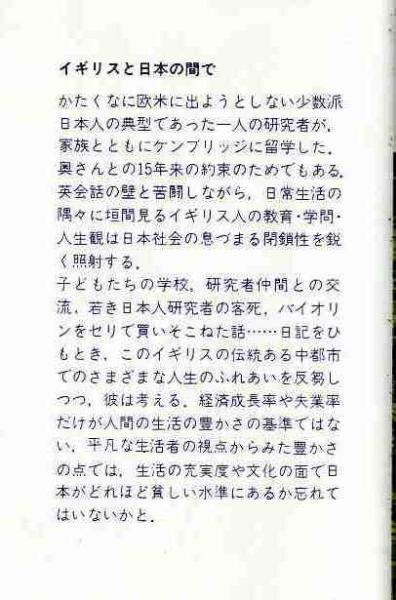 イギリスと日本の間で
かたくなに欧米に出ようとしない少数派
日本人の典型であった一人の研究者が，
家族とともにケンブリッジに留学した．
奥さんとの15年来の約束のためでもある．
英会話の壁と苦闘しながら，日常生活の
隅々に垣間見るイギリス人の教育・学問・
人生観は日本社会の息づまる閉鎖性を鋭
く照射する．
子どもたちの学校，研究者仲間との交
流，若き日本人研究者の客死，バイオリ
ンをセリで買いそこねた話……日記をひ
もとき，このイギリスの伝統ある中都市
でのさまざまな人生のふれあいを反芻し
つつ，彼は考える．経済成長率や失業率
だけが人間の生活の豊かさの基準ではな
い，平凡な生活者の視点からみた豊かさ
の点では，生活の充実度や文化の面で日
本がどれほど貧しい水準にあるか忘れて
はいないかと．